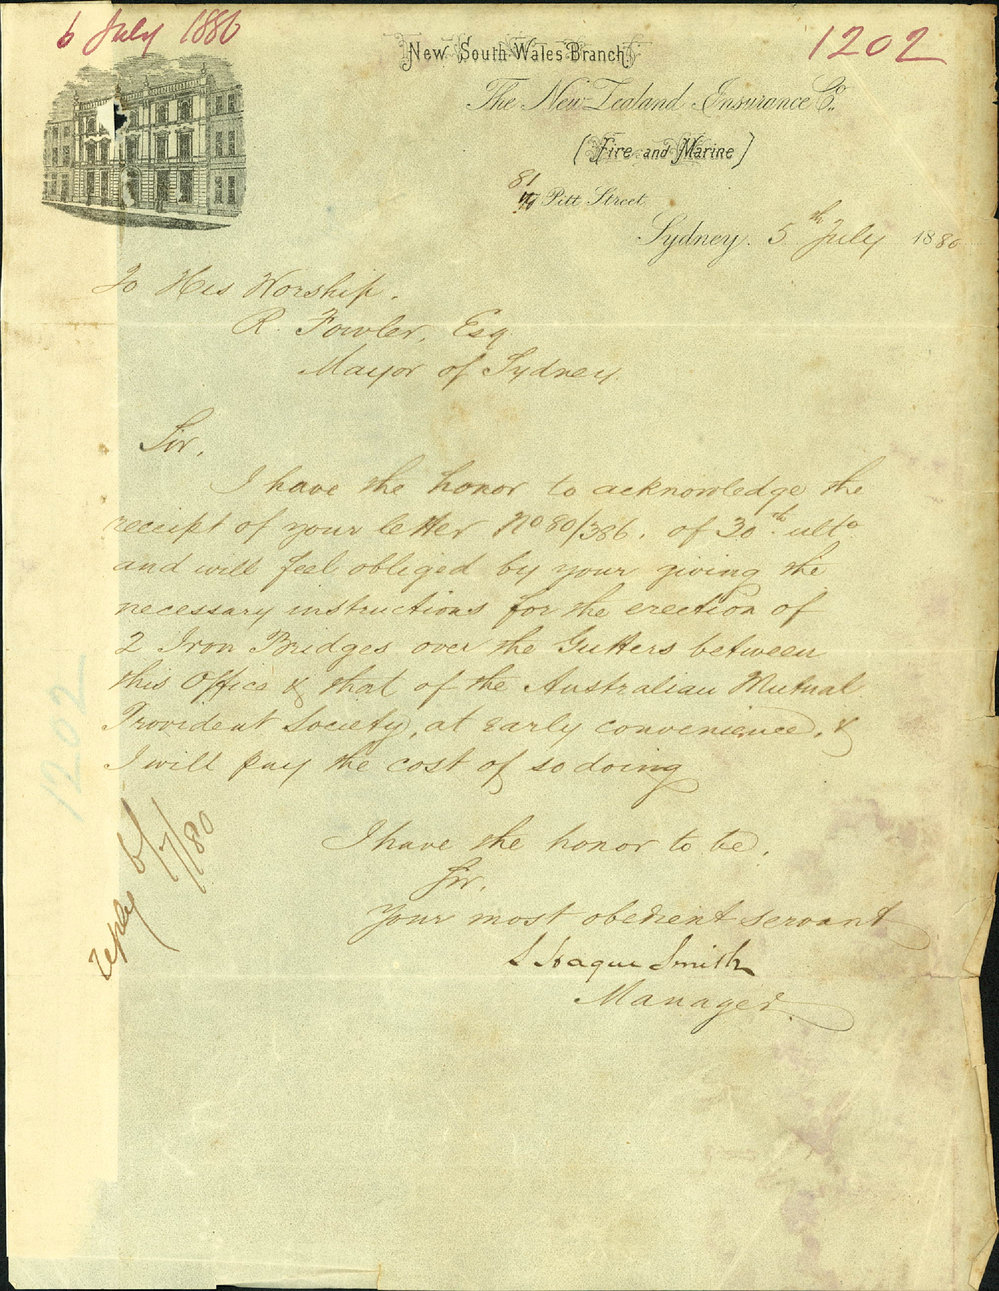 6 July 1880
1202
New South Wales Branch
The New Zealand Insurance Co.
(Fire and Marine)
81
Pitt Street
Sydney. 5th July 1880
To His Worship.
R. Fowler, Esq
Mayor of Sydney.
Sir,
I have the honor to acknowledge the
receipt of your letter No 80/386. of 30th ulto
and will feel obliged by your giving the
necessary instructions for the erection of
2 Iron Bridges over the Gutters between
this Office & that of the Australian Mutual
Provident Society, at early convenience, &
I will pay the cost of so doing
I have the honor to be,
Sir,
Your most obedient servant
Hague Smith
Manager.
1202
reply 6/7/80